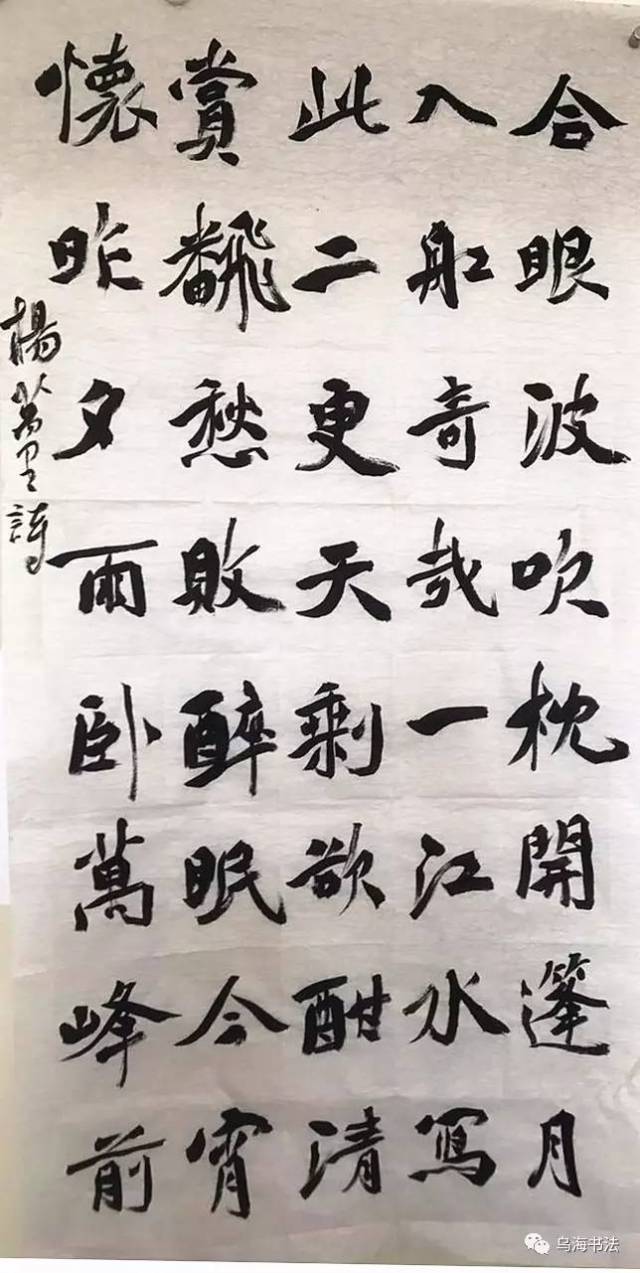 合眼波吹枕開篷月
入舡奇哉一江水寫
此二更天剩欲酣清
賞翻愁敗醉眠今宵
懐昨夕雨卧萬峰前
楊萬里詩
乌海书法